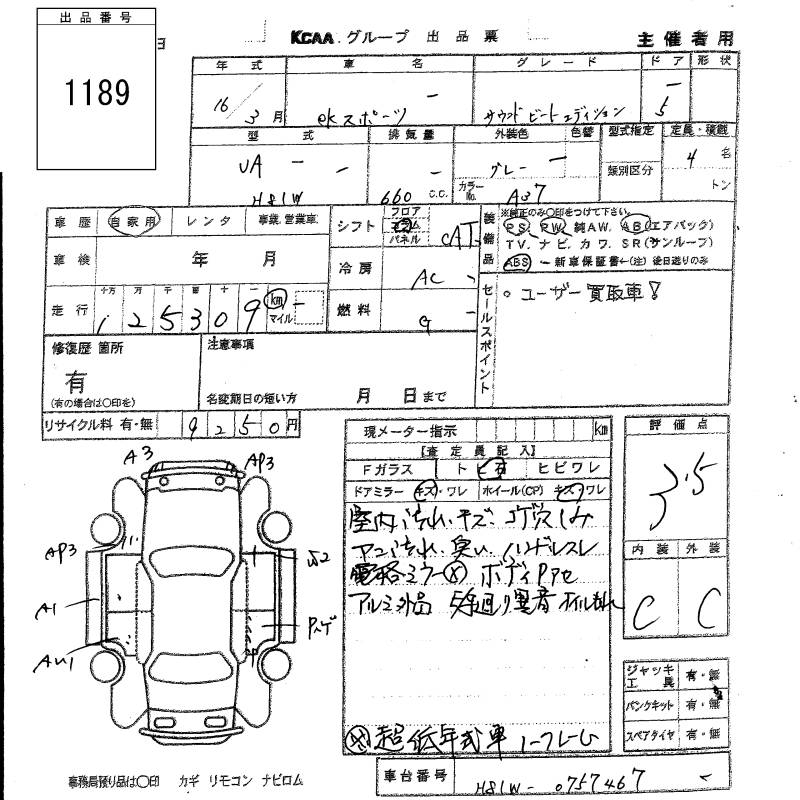 出品番号
1189
KCAA グループ 出品票
主催者用
年式 車名 グレード ドア 形状
16/3月 ekスポーツ サウンドビートエディション 5
型式 排気量 外装色 色替 型式指定 定員・積載
UA- H81W 660 c.c. グレー 類別区分 4名
カラーNo. A37 トン
車歴 自家用 レンタ 事業、営業車
シフト フロア コラム パネル CAT
装備品
※純正のみ〇印をつけて下さい。
PS, RW, 純AW, AB(エアバック)
TV, ナビ, カワ, SR(サンルーフ)
ABS ー新車保証書←(注) 後日送りのみ
車検 年 月
冷房 AC
走行 十万 万 千 百 十 一
125309 km マイル
燃料 G
セールスポイント
。ユーザー買取車!
修復歴 箇所
有
(有の場合は〇印を)
注意事項
名変期日の短い方 月 日まで
リサイクル料 有・無 9250円
現メーター指示 km
【査定員記入】
Fガラス ト ヒ石 ヒビワレ
ドアミラー キズ・ワレ ホイール(CP) キズ・ワレ
室内汚れ、キズ、コゲ穴、しみ
臭い ハンドルスレ
電格ミラー ボディ
アルミ外品 異音 オイルもれ
超低年式車
評価点
3.5
内装 外装
C C
A3 AP3
AP3
A1
AU1
ジャッキ工具 有・無
パンクキット 有・無
スペアタイヤ 有・無
事務局預り品は〇印 カギ リモコン ナビロム
車台番号 H81W-0757467